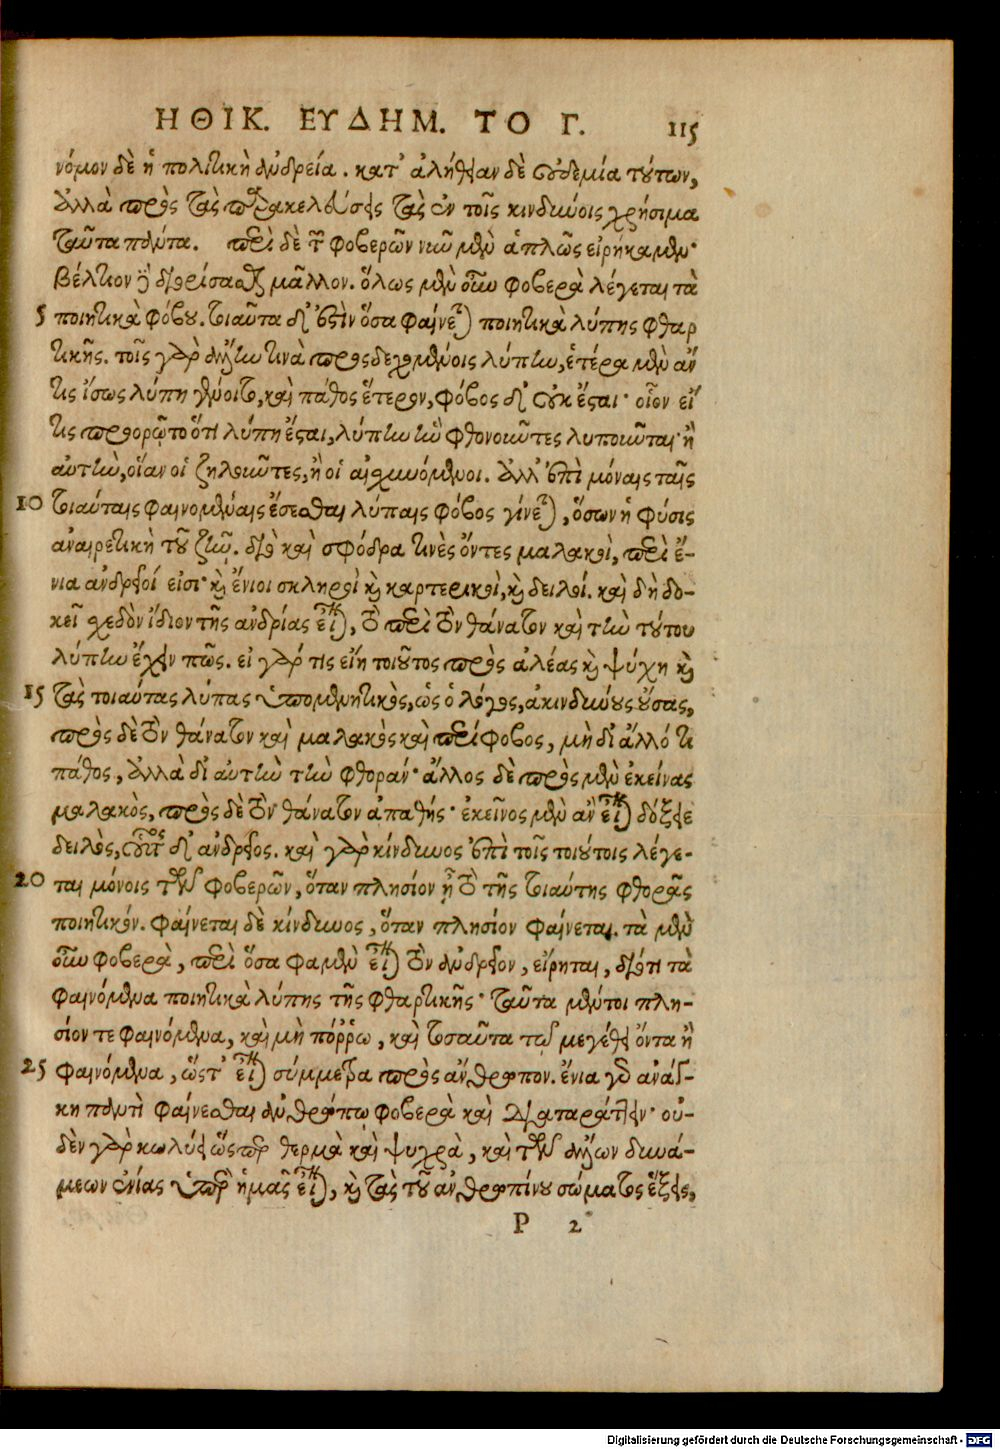 ΗΘΙΚ. ΕΥΔΗΜ. ΤΟ Γ. 115
νόμον δὲ ἡ πολιτικὴ ἀνδρεία. κατ' ἀλήθειαν δὲ οὐδεμία τούτων,
ἀλλὰ πρὸς τὰς παρακελεύσεις τὰς ἐν τοῖς κινδύνοις χρήσιμα
ταῦτα πάντα. περὶ δὲ τῶν φοβερῶν νῦν μὲν ἁπλῶς εἰρήκαμεν·
βέλτιον δὲ διορίσασθαι μᾶλλον. ὅλως μὲν οὖν φοβερὰ λέγεται τὰ
5 ποιητικὰ φόβου. τοιαῦτα δ' ἐστὶν ὅσα φαίνεται ποιητικὰ λύπης φθαρ
τικῆς. τοῖς γὰρ ἄλλην τινὰ προσδεχομένοις λύπην, ἑτέρα μὲν ἄν
τις ἴσως λύπη γένοιτο, καὶ πάθος ἕτερον, φόβος δ' οὐκ ἔσται· οἷον εἴ
τις προορῷτο ὅτι λύπη ἔσται, λύπην ἣν φθονοῦντες λυποῦνται· ἢ
αὐτὴν, οἵαν οἱ ζηλοῦντες, ἢ οἱ αἰσχυνόμενοι. ἀλλ' ἐπὶ μόναις ταῖς
10 τοιαύταις φαινομέναις ἔσεσθαι λύπαις φόβος γίνεται, ὅσων ἡ φύσις
ἀναιρετικὴ τοῦ ζῆν. διὸ καὶ σφόδρα τινὲς ὄντες μαλακοὶ, περὶ ἔ-
νια ἀνδρεῖοί εἰσι· καὶ ἔνιοι σκληροὶ καὶ καρτερικοὶ, καὶ δειλοί. καὶ δὴ δο-
κεῖ σχεδὸν ἴδιον τῆς ἀνδρίας εἶναι, τὸ περὶ τὸν θάνατον καὶ τὴν τούτου
λύπην ἔχειν πῶς. εἰ γάρ τις εἴη τοιοῦτος πρὸς ἀλέας καὶ ψύχη καὶ
15 τὰς τοιαύτας λύπας ὑπομενητικὸς, ὡς ὁ λόγος, ἀκινδύνους οὔσας,
πρὸς δὲ τὸν θάνατον καὶ μαλακὸς καὶ περίφοβος, μὴ δι' ἄλλό τι
πάθος, ἀλλὰ δι' αὐτὴν τὴν φθοράν· ἄλλος δὲ πρὸς μὲν ἐκείνας
μαλακὸς, πρὸς δὲ τὸν θάνατον ἀπαθής· ἐκεῖνος μὲν ἂν εἶναι δόξειε
δειλὸς, οὗτος δ' ἀνδρεῖος. καὶ γὰρ κίνδυνος ἐπὶ τοῖς τοιούτοις λέγε-
20 ται μόνοις τῶν φοβερῶν, ὅταν πλησίον ᾖ τὸ τῆς τοιαύτης φθορᾶς
ποιητικόν. φαίνεται δὲ κίνδυνος, ὅταν πλησίον φαίνεται. τὰ μὲν
οὖν φοβερὰ, περὶ ὅσα φαμὲν εἶναι τὸν ἀνδρεῖον, εἴρηται, διότι τὰ
φαινόμενα ποιητικὰ λύπης τῆς φθαρτικῆς· ταῦτα μέντοι πλη-
σίον τε φαινόμενα, καὶ μὴ πόῤῥω, καὶ τοσαῦτα τῷ μεγέθει ὄντα ἢ
25 φαινόμενα, ὥστ' εἶναι σύμμετρα πρὸς ἄνθρωπον. ἔνια γὰρ ἀνάγ-
κη παντὶ φαίνεσθαι ἀνθρώπῳ φοβερὰ καὶ διαταράττειν· οὐ-
δὲν γὰρ κωλύει ὥσπερ θερμὰ καὶ ψυχρὰ, καὶ τῶν ἄλλων δυνά-
μεων ἐνίας ὑπὲρ ἡμᾶς εἶναι, καὶ τὰς τοῦ ἀνθρωπίνου σώματος ἕξεις,
P 2
Digitalisierung gefördert durch die Deutsche Forschungsgemeinschaft - DFG